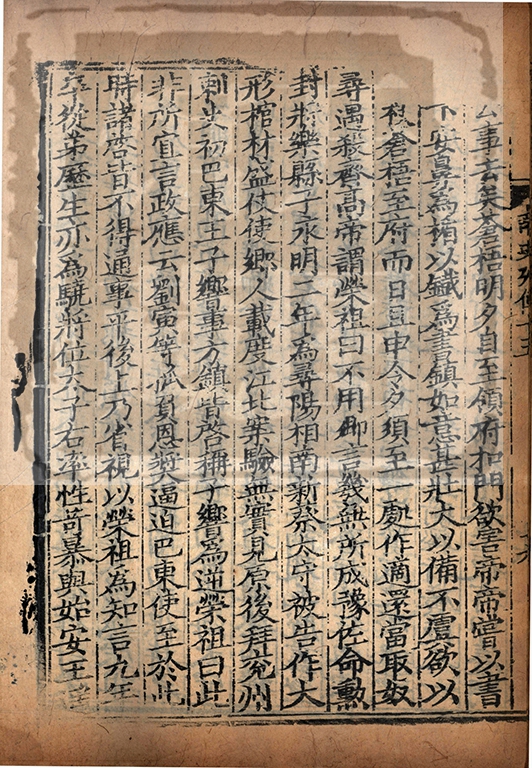 公事去矣蒼梧明夕自至領府扣門欲害帝帝嘗以書
下安鼻為楯以鐵為書鎮如意甚壯大以備不虞欲以
杖蒼梧至府而曰且申今夕須至一處作適還當取奴
尋遇殺齊高帝謂榮祖曰不用卿言幾無所成豫佐命勳
封將樂縣子永明二年為尋陽相南新蔡太守被告作大
形棺材盛仗使鄉人載度江北案驗無實見原後拜兗州
刺史初巴東王子響事方鎮皆啓稱子響為逆榮祖曰此
非所宜言政應云劉寅等孤負恩奬逼迫巴東使至於此
時諸啓皆不得通事平後上乃省視以榮祖為知言九年
卒從弟歷生亦為驍將位太子右率性苛暴與始安王遙